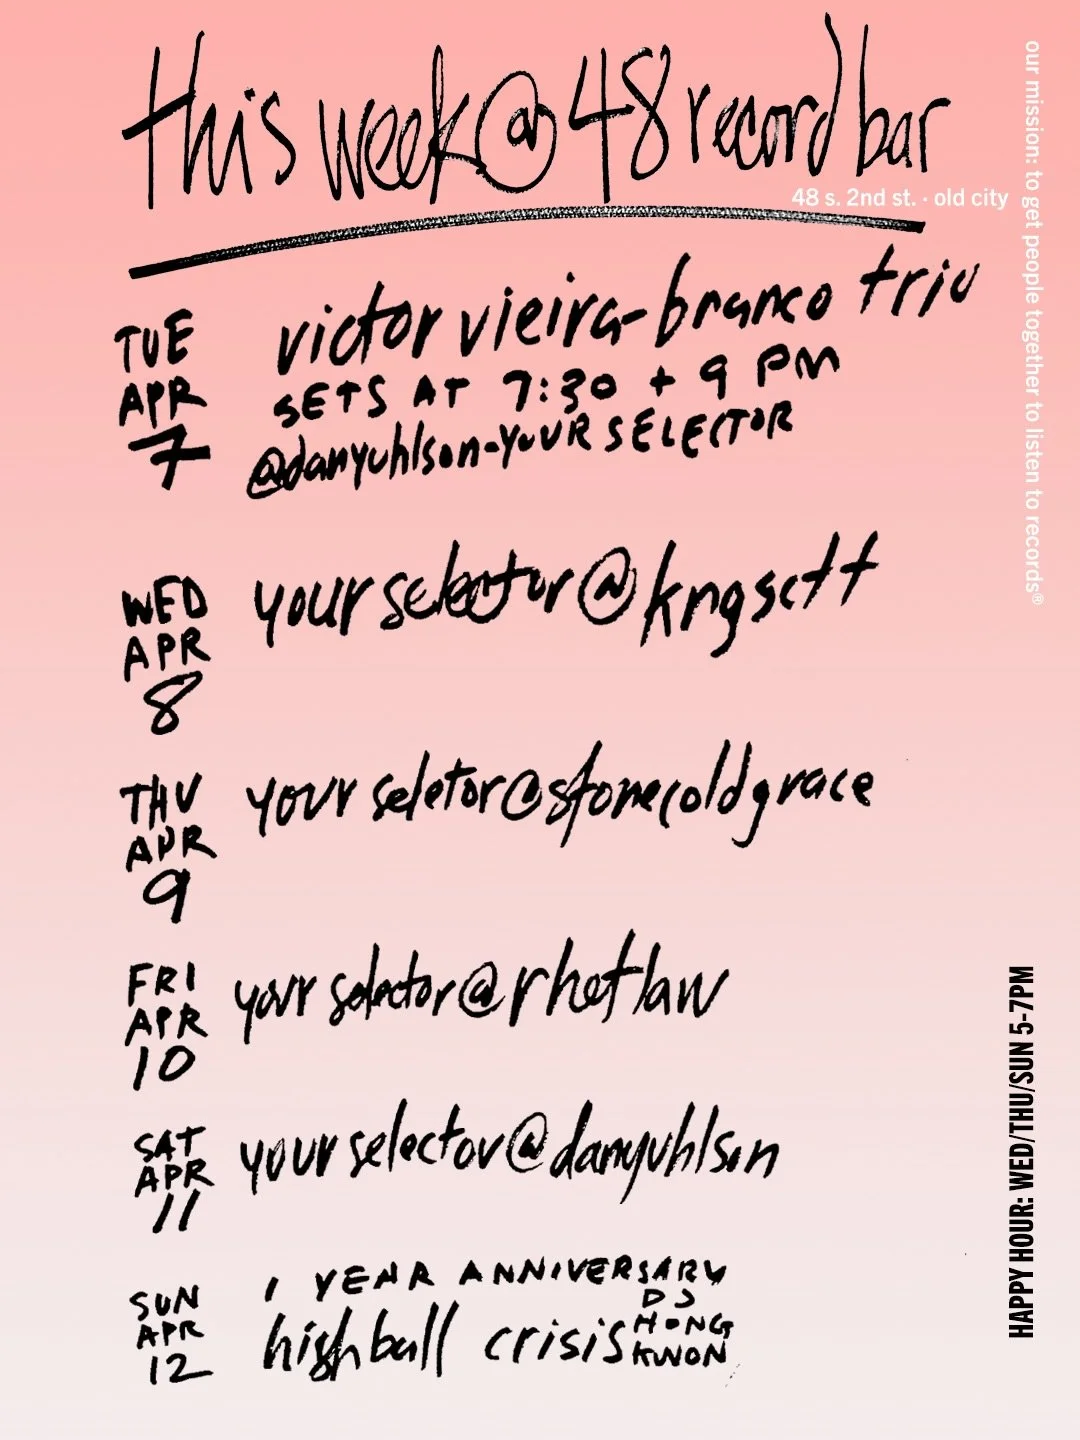 this week @ 48 record bar
48 s. 2nd st. · old city
our mission: to get people together to listen to records®
TUE
APR
7
victor vieira-branco trio
SETS AT 7:30 + 9 PM
@danyuhlson-YOUR SELECTOR
WED
APR
8
your selector @ kngsctt
THU
APR
9
your seletor @ stonecoldgrace
FRI
APR
10
your selector @ rhetlaw
SAT
APR
11
your selector @ danyuhlson
SUN
APR
12
1 YEAR ANNIVERSARY
highball crisis
DJ
HONG
KWON
HAPPY HOUR: WED/THU/SUN 5-7PM